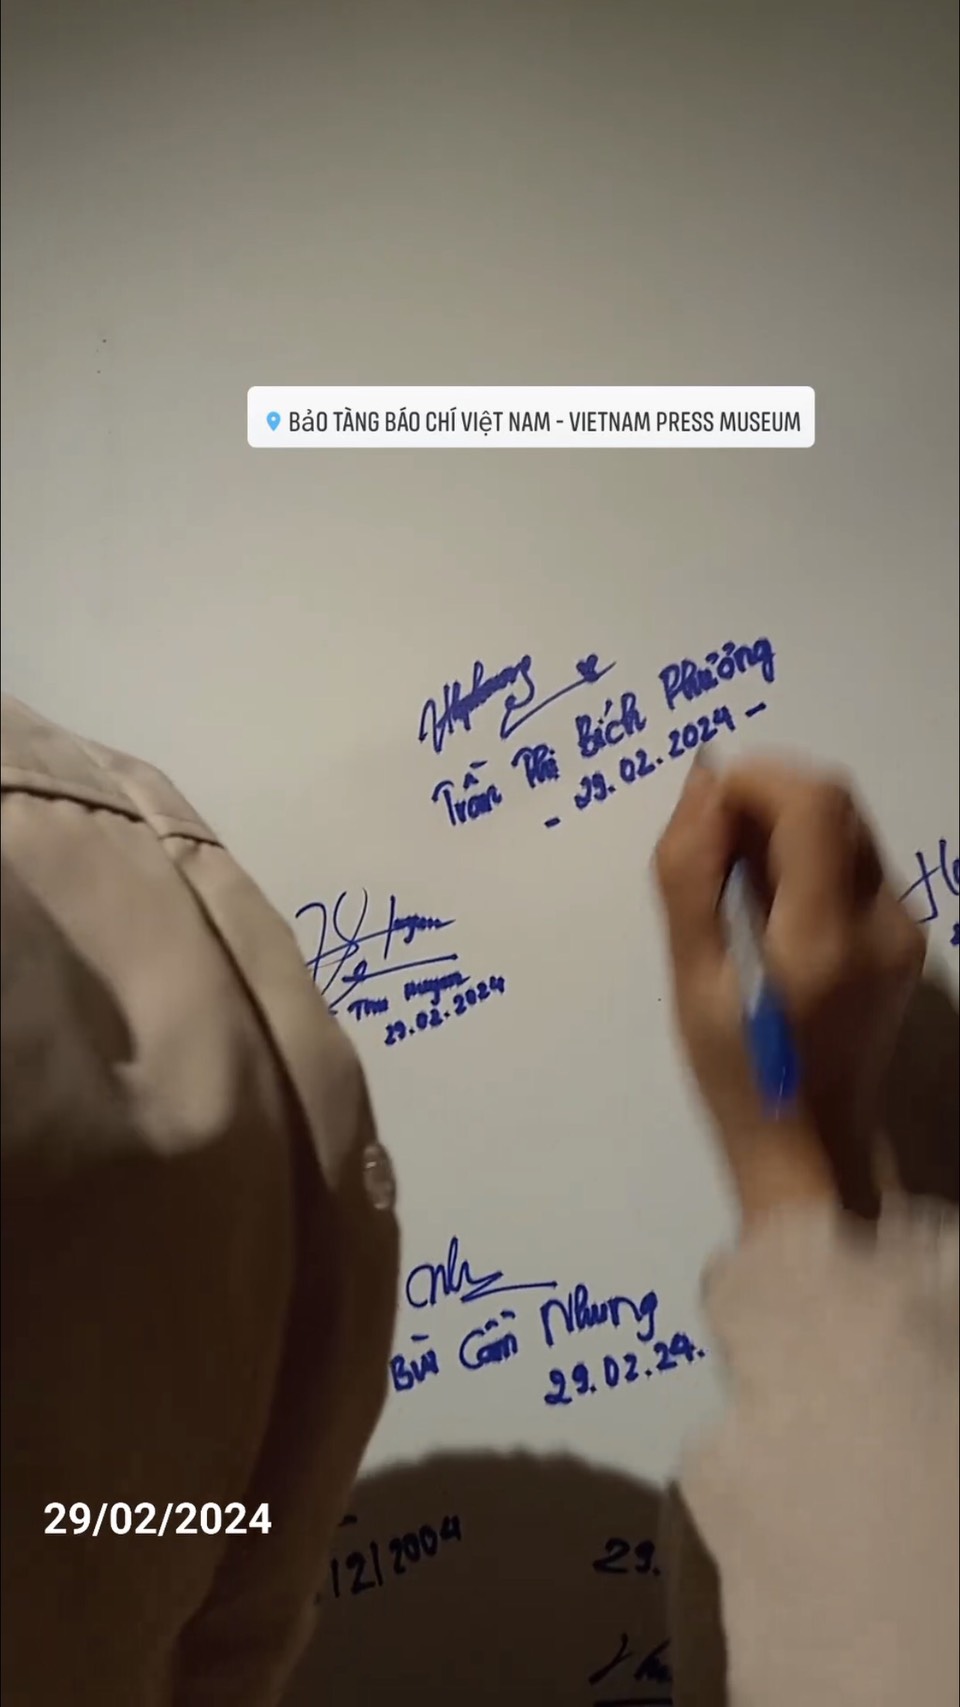 BảO TÀNG BÁO CHÍ VIệT NAM - VIETNAM PRESS MUSEUM
Trần Thị Bích Phương
- 29.02.2024 -
Thu Huyền
29.02.2024
Bùi Cẩm Nhung
29.02.24.
29/02/2024
/2/2004
29.